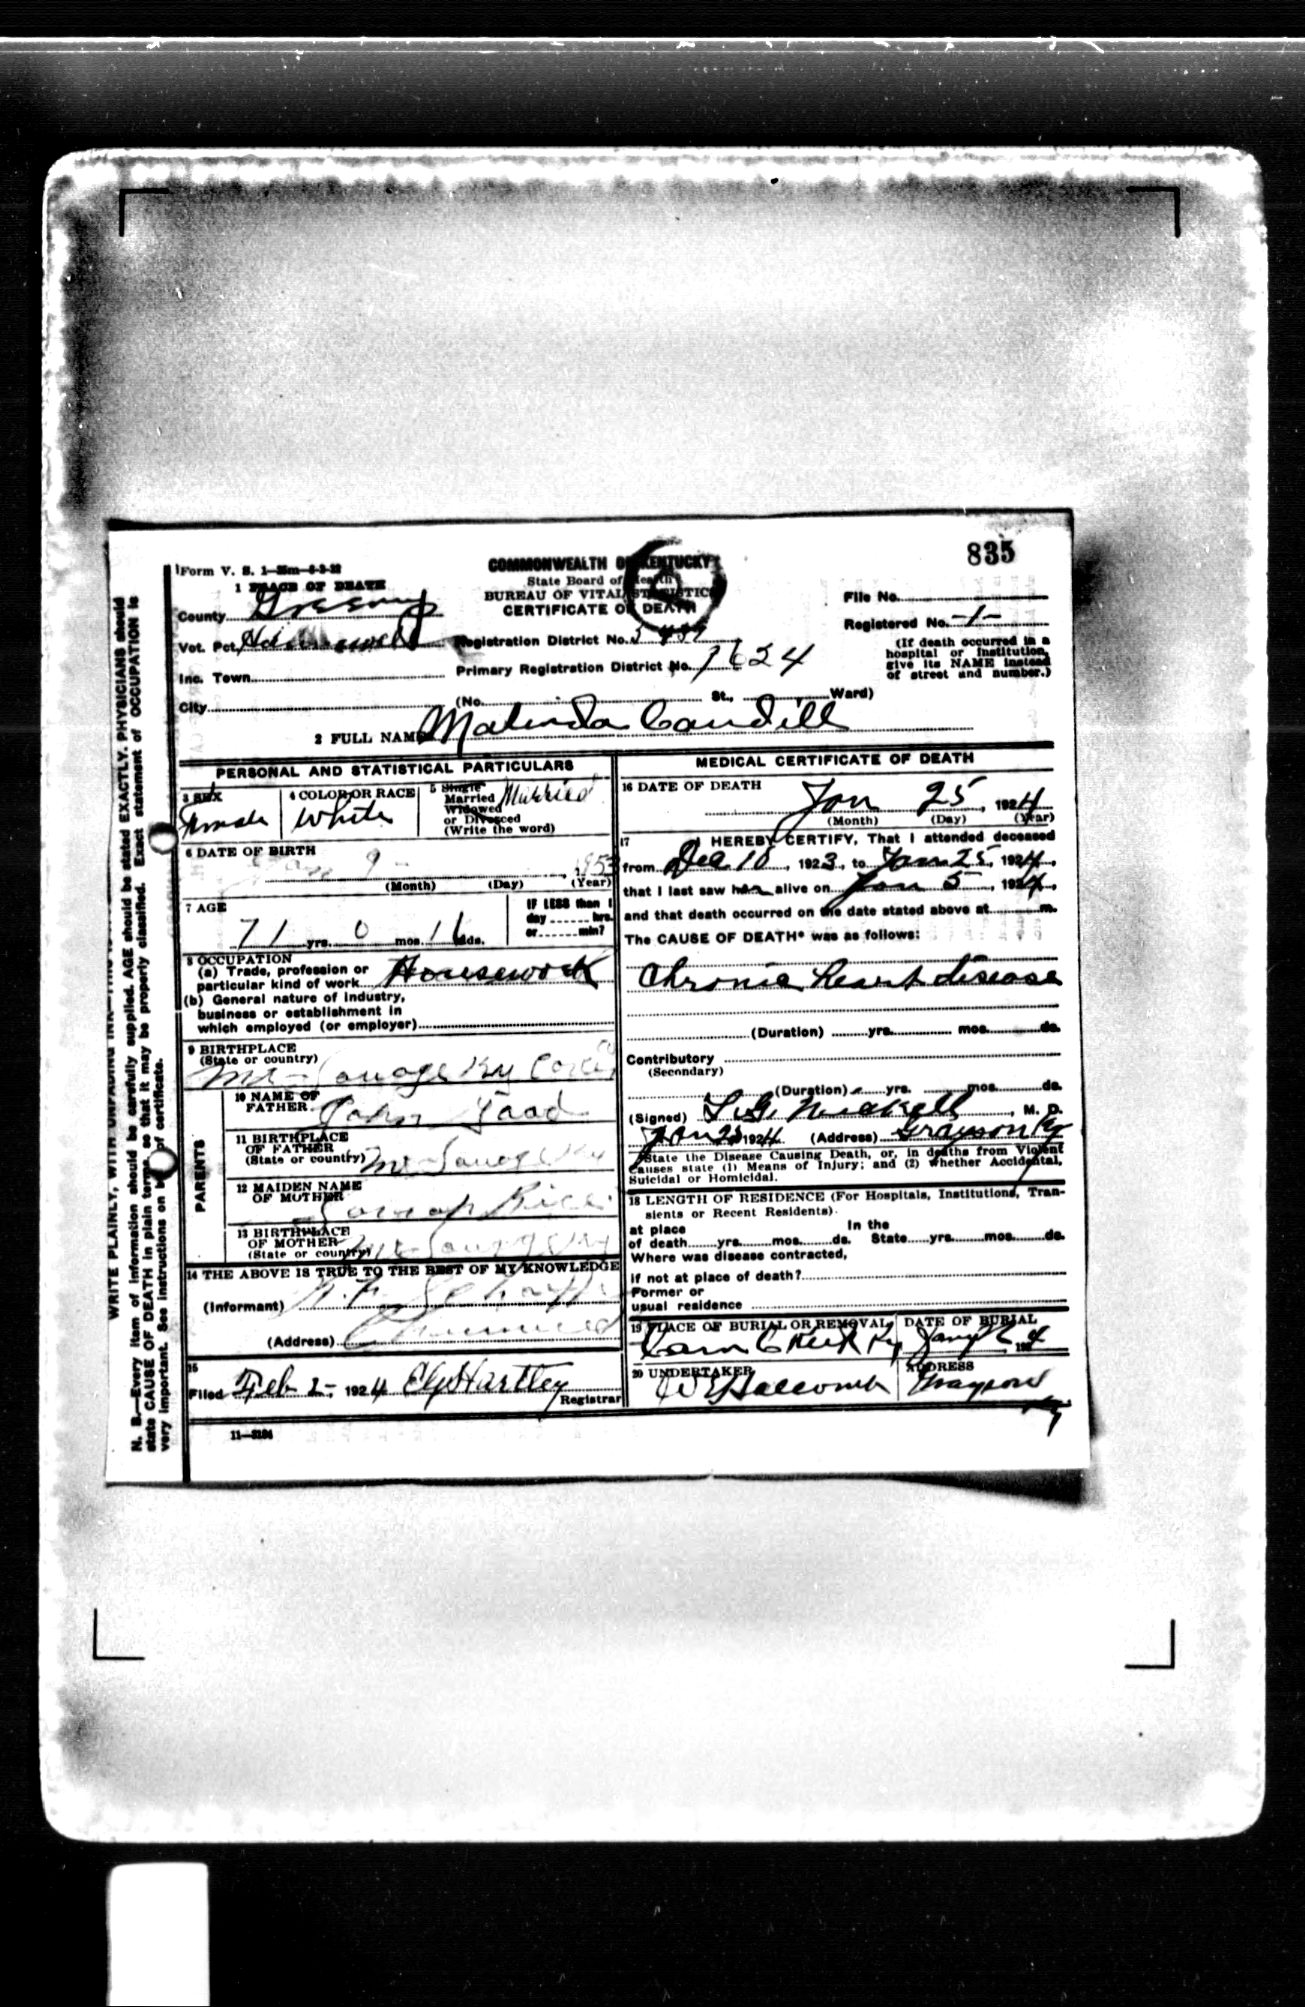 835
Form V. S. 1—25m—6-3-22
COMMONWEALTH OF KENTUCKY
State Board of Health
BUREAU OF VITAL STATISTICS
CERTIFICATE OF DEATH
1 PLACE OF DEATH
County
Vot. Pct.
Inc. Town
City
Registration District No.
Primary Registration District No. 7624
(No. St., Ward)
File No.
Registered No. -1-
(If death occurred in a
hospital or institution,
give its NAME instead
of street and number.)
2 FULL NAME Malinda Caudill
PERSONAL AND STATISTICAL PARTICULARS
3 SEX
Female
4 COLOR OR RACE
White
5 Single
Married
Widowed
or Divorced
(Write the word)
Married
6 DATE OF BIRTH
Jan 9 - 1853
(Month) (Day) (Year)
7 AGE
71 yrs. 0 mos. 16 ds.
IF LESS than 1
day hrs.
or min?
8 OCCUPATION
(a) Trade, profession or
particular kind of work Housework
(b) General nature of industry,
business or establishment in
which employed (or employer)
9 BIRTHPLACE
(State or country)
Mt Savage Ky
PARENTS
10 NAME OF
FATHER John
11 BIRTHPLACE
OF FATHER
(State or country) Mt Savage Ky
12 MAIDEN NAME
OF MOTHER Rice
13 BIRTHPLACE
OF MOTHER
(State or country) Mt Savage Ky
14 THE ABOVE IS TRUE TO THE BEST OF MY KNOWLEDGE
(Informant)
(Address)
15
Filed Feb 2- 1924 Hartley
Registrar
11—3184
MEDICAL CERTIFICATE OF DEATH
16 DATE OF DEATH
Jan 25, 1924
(Month) (Day) (Year)
17 I HEREBY CERTIFY, That I attended deceased
from Dec 10, 1923, to Jan 25, 1924,
that I last saw her alive on Jan 5, 1924,
and that death occurred on the date stated above at m.
The CAUSE OF DEATH* was as follows:
Chronic Heart disease
(Duration) yrs. mos. ds.
Contributory
(Secondary)
(Duration) yrs. mos. ds.
(Signed) , M. D.
1924 (Address) Grayson Ky
*State the Disease Causing Death, or, in deaths from Violent
Causes state (1) Means of Injury; and (2) whether Accidental,
Suicidal or Homicidal.
18 LENGTH OF RESIDENCE (For Hospitals, Institutions, Tran-
sients or Recent Residents).
at place In the
of death yrs. mos. ds. State yrs. mos. ds.
Where was disease contracted,
if not at place of death?
Former or
usual residence
19 PLACE OF BURIAL OR REMOVAL
Creek Ky
DATE OF BURIAL
1924
20 UNDERTAKER
ADDRESS
Grayson
Ky
N. B.—Every item of information should be carefully supplied. AGE should be stated EXACTLY. PHYSICIANS should
state CAUSE OF DEATH in plain terms, so that it may be properly classified. Exact statement of OCCUPATION is
very important. See instructions on back of certificate.
WRITE PLAINLY, WITH UNFADING INK—THIS IS